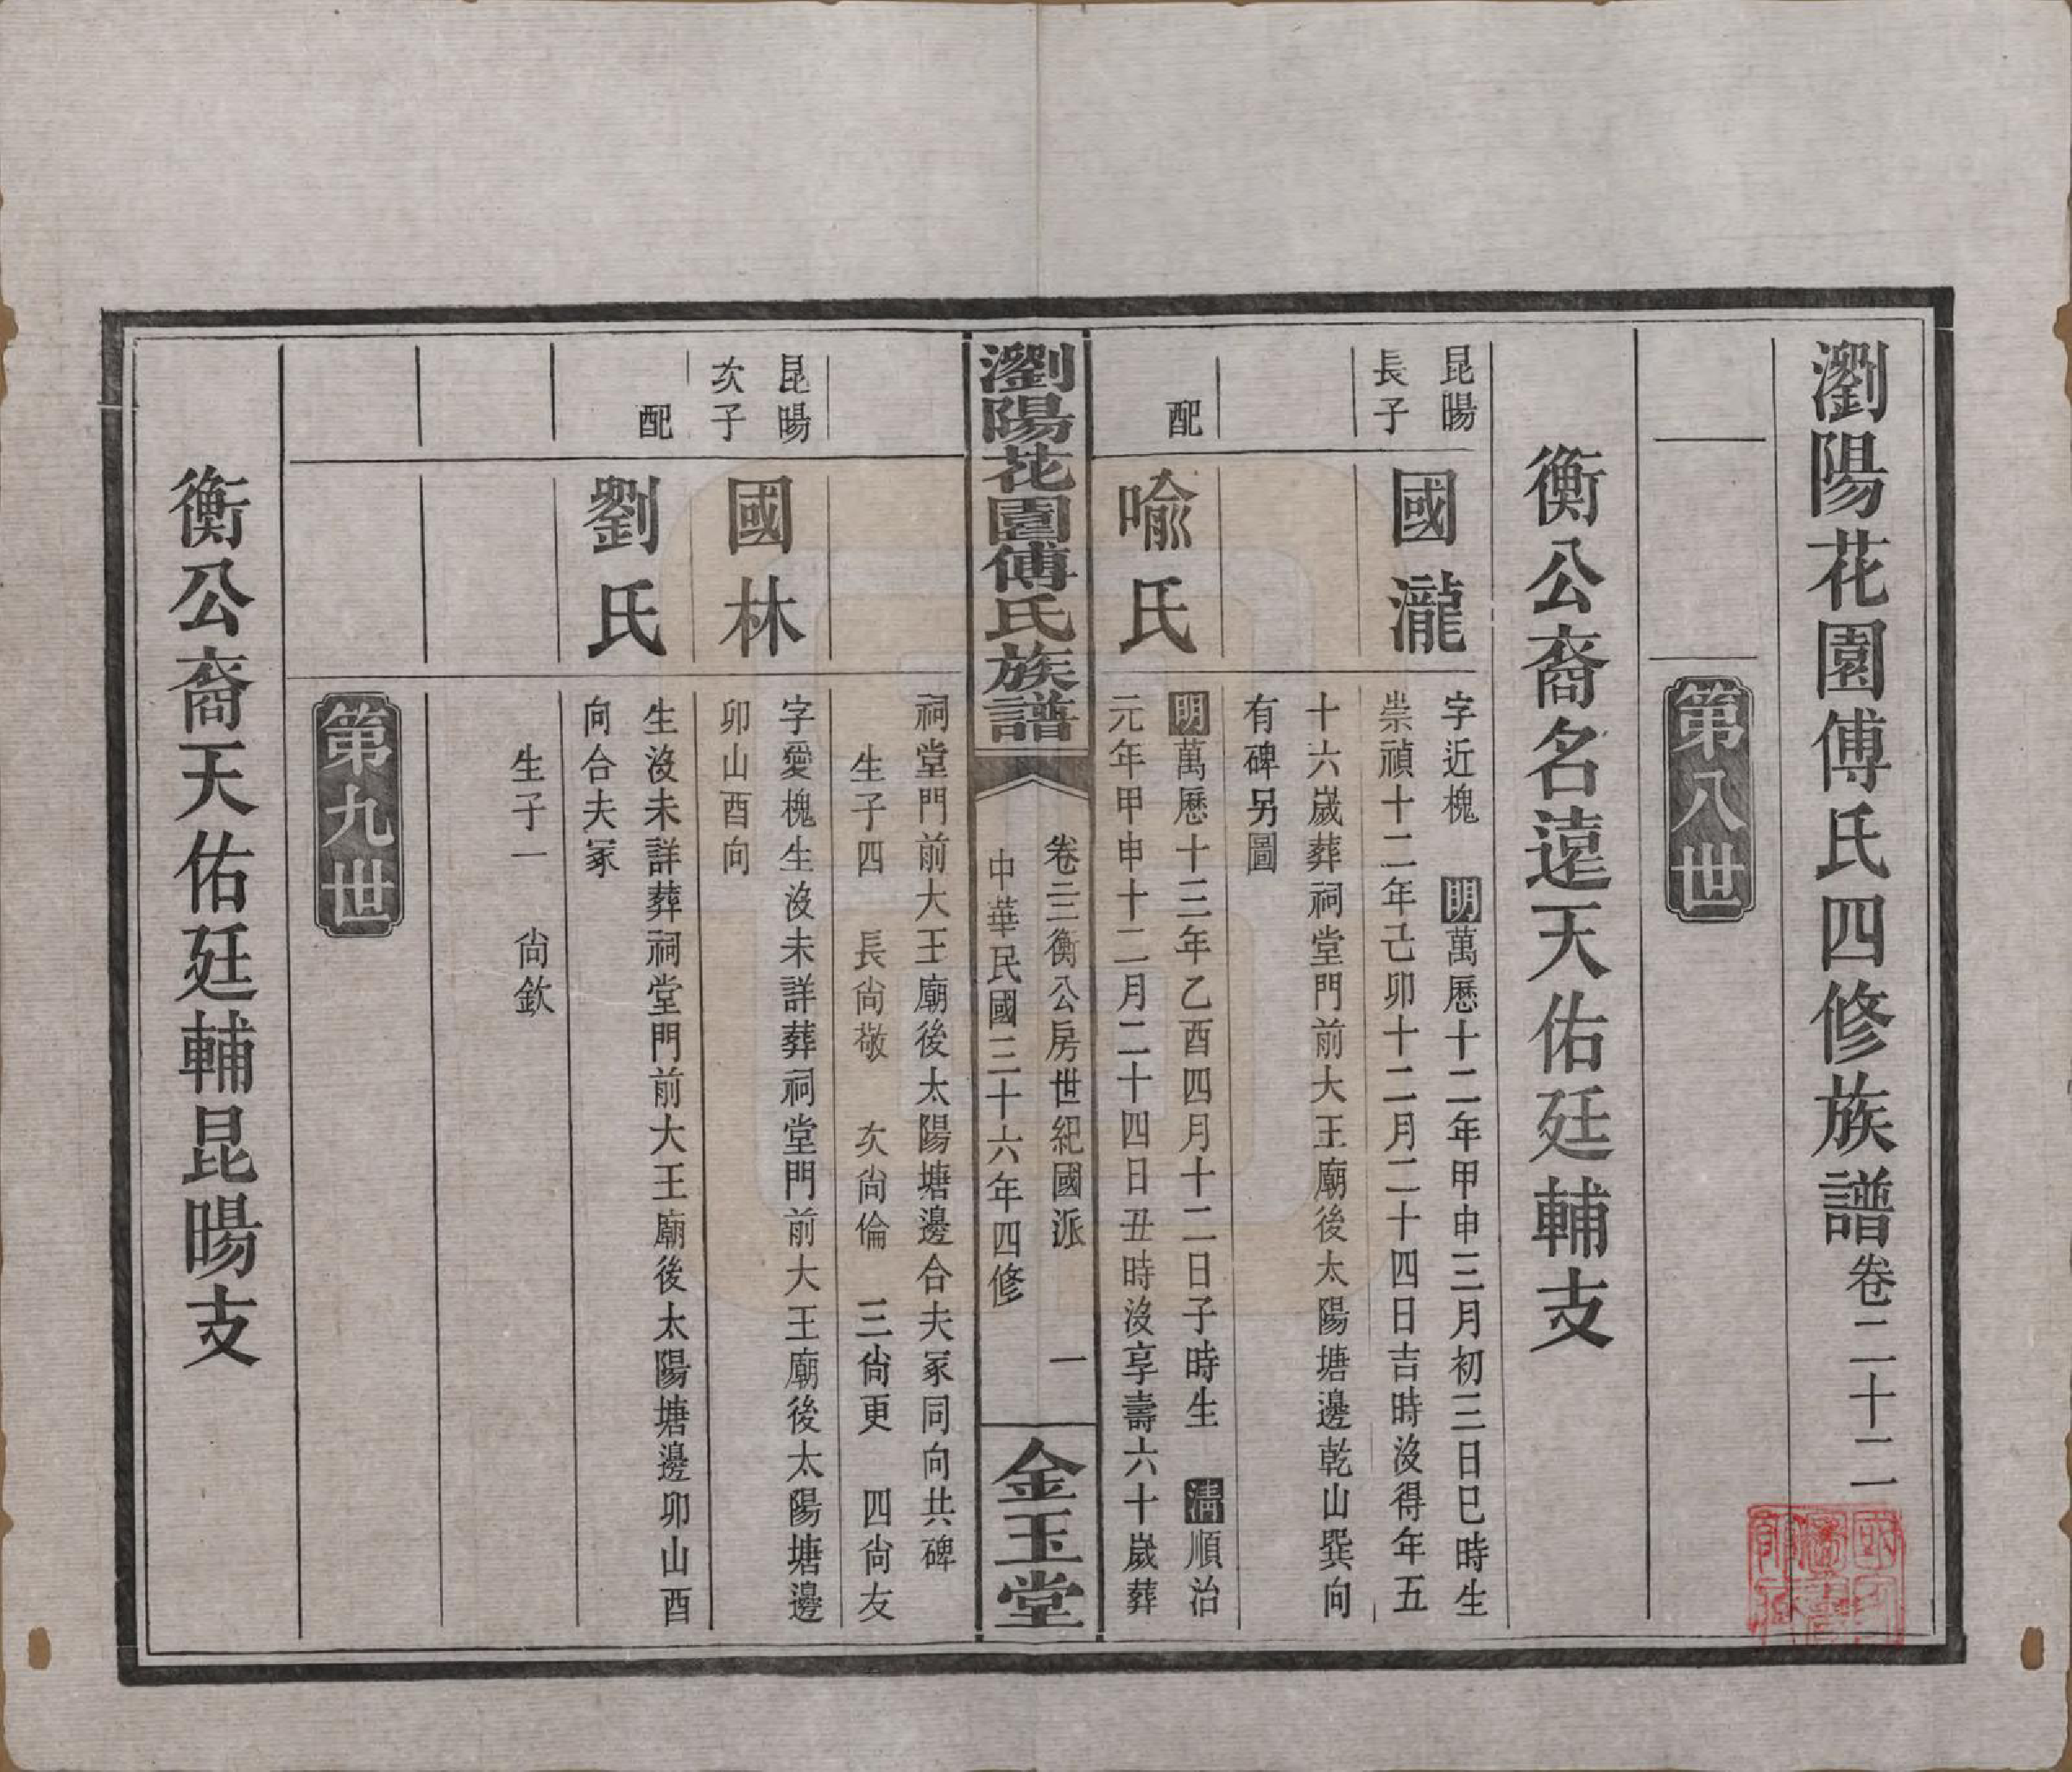 瀏陽花園傅氏四修族譜卷二十二
第八世
衡公裔名遠天佑廷輔支
昆暘
長子
國瀧
字近槐　明萬曆十二年甲申三月初三日巳時生
崇禎十二年己卯十二月二十四日吉時沒得年五
十六嵗葬祠堂門前大王廟後太陽塘邊乾山巽向
有碑另圖
配
喩氏
明萬曆十三年乙酉四月十二日子時生　清順治
元年甲申十二月二十四日丑時沒享壽六十嵗葬
瀏陽花園傅氏族譜
卷二二衡公房世紀國派　一
中華民國三十六年四修
金玉堂
祠堂門前大王廟後太陽塘邊合夫冢同向共碑
生子四　長尙敬　次尙倫　三尙更　四尙友
昆暘
次子
國林
字愛槐生沒未詳葬祠堂門前大王廟後太陽塘邊
卯山酉向
配
劉氏
生沒未詳葬祠堂門前大王廟後太陽塘邊卯山酉
向合夫冢
生子一　尙欽
第九世
衡公裔天佑廷輔昆暘支